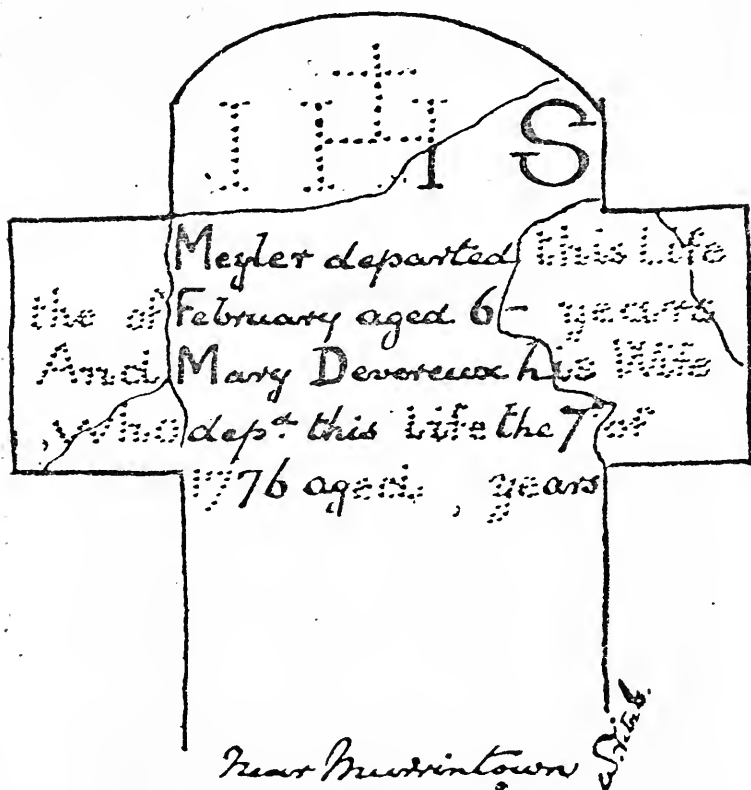 IHS
Meyler departed this Life
the of February aged 6- years
And Mary Devereux his Wife
Who depd this Life the 7 of
1776 aged, years
Near Murrintown